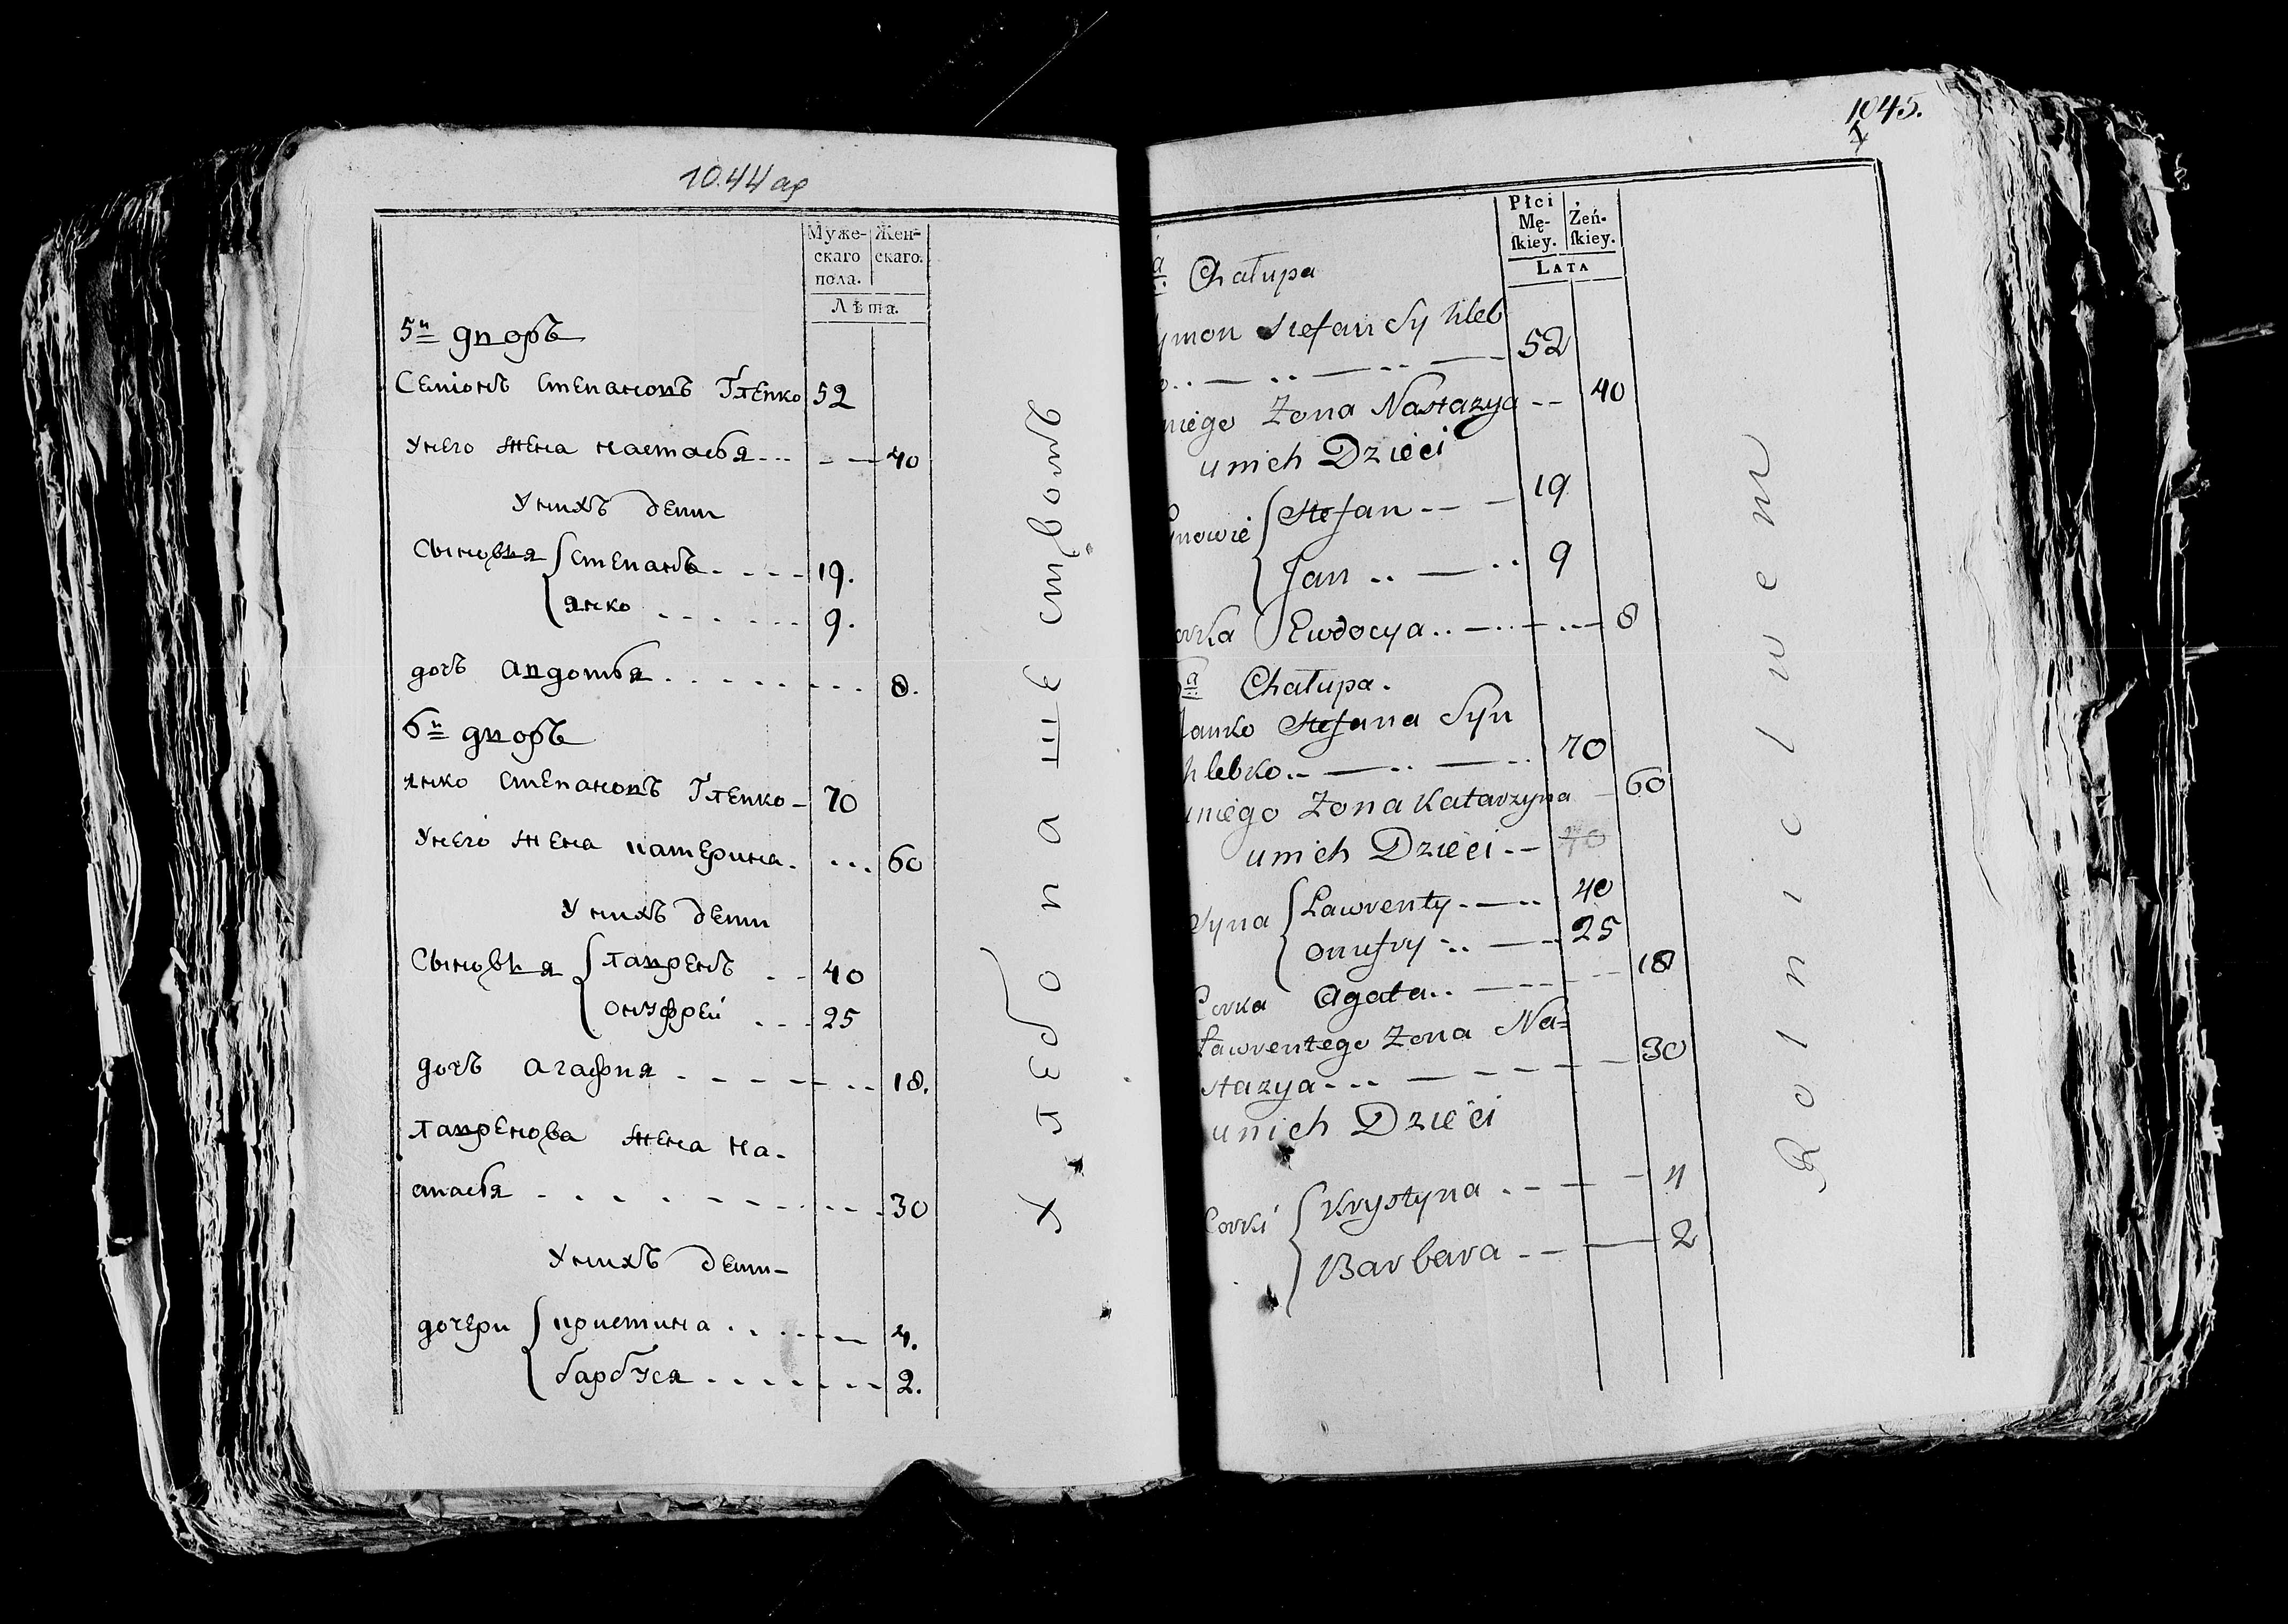 10.44 ар
Муже-
скаго
пола.
Жен-
скаго.
Лѣта.
5й дворъ
Семіонъ степановъ Глепко 52
унего жена настасья 40
Унихъ дети
Сыновья степанъ 19.
янко 9.
дочъ авдотья 8.
6й дворъ
янко степановъ Глепко 70
Унего жена катерина 60
Унихъ дети
Сыновья лавренъ 40
онуфрей 25
дочъ агафия 18.
лавренова жена на-
стасья 30
Унихъ дети
дочери кристина 4.
барбуся 2.
1045.
Płci
Mę-
skiey.
Żeń-
skiey.
LATA
a Chałupa
ymon Stefan Sy Hleb
52
niego Żona Nastazya 40
unich Dzieci
ynowie Stefan 19
Jan 9
orka Ewdocya 8
a Chałupa.
Janko Stefana Syn
hlebko 70
uniego Żona Katarzyna 60
unich Dzieci 40
Syna Ławrenty 40
onufry 25
Corka Agata 18
Ławrentego Żona Na=
stazya 30
unich Dzieci
Corki Krystyna 4
Barbara 2
Rolnictwem